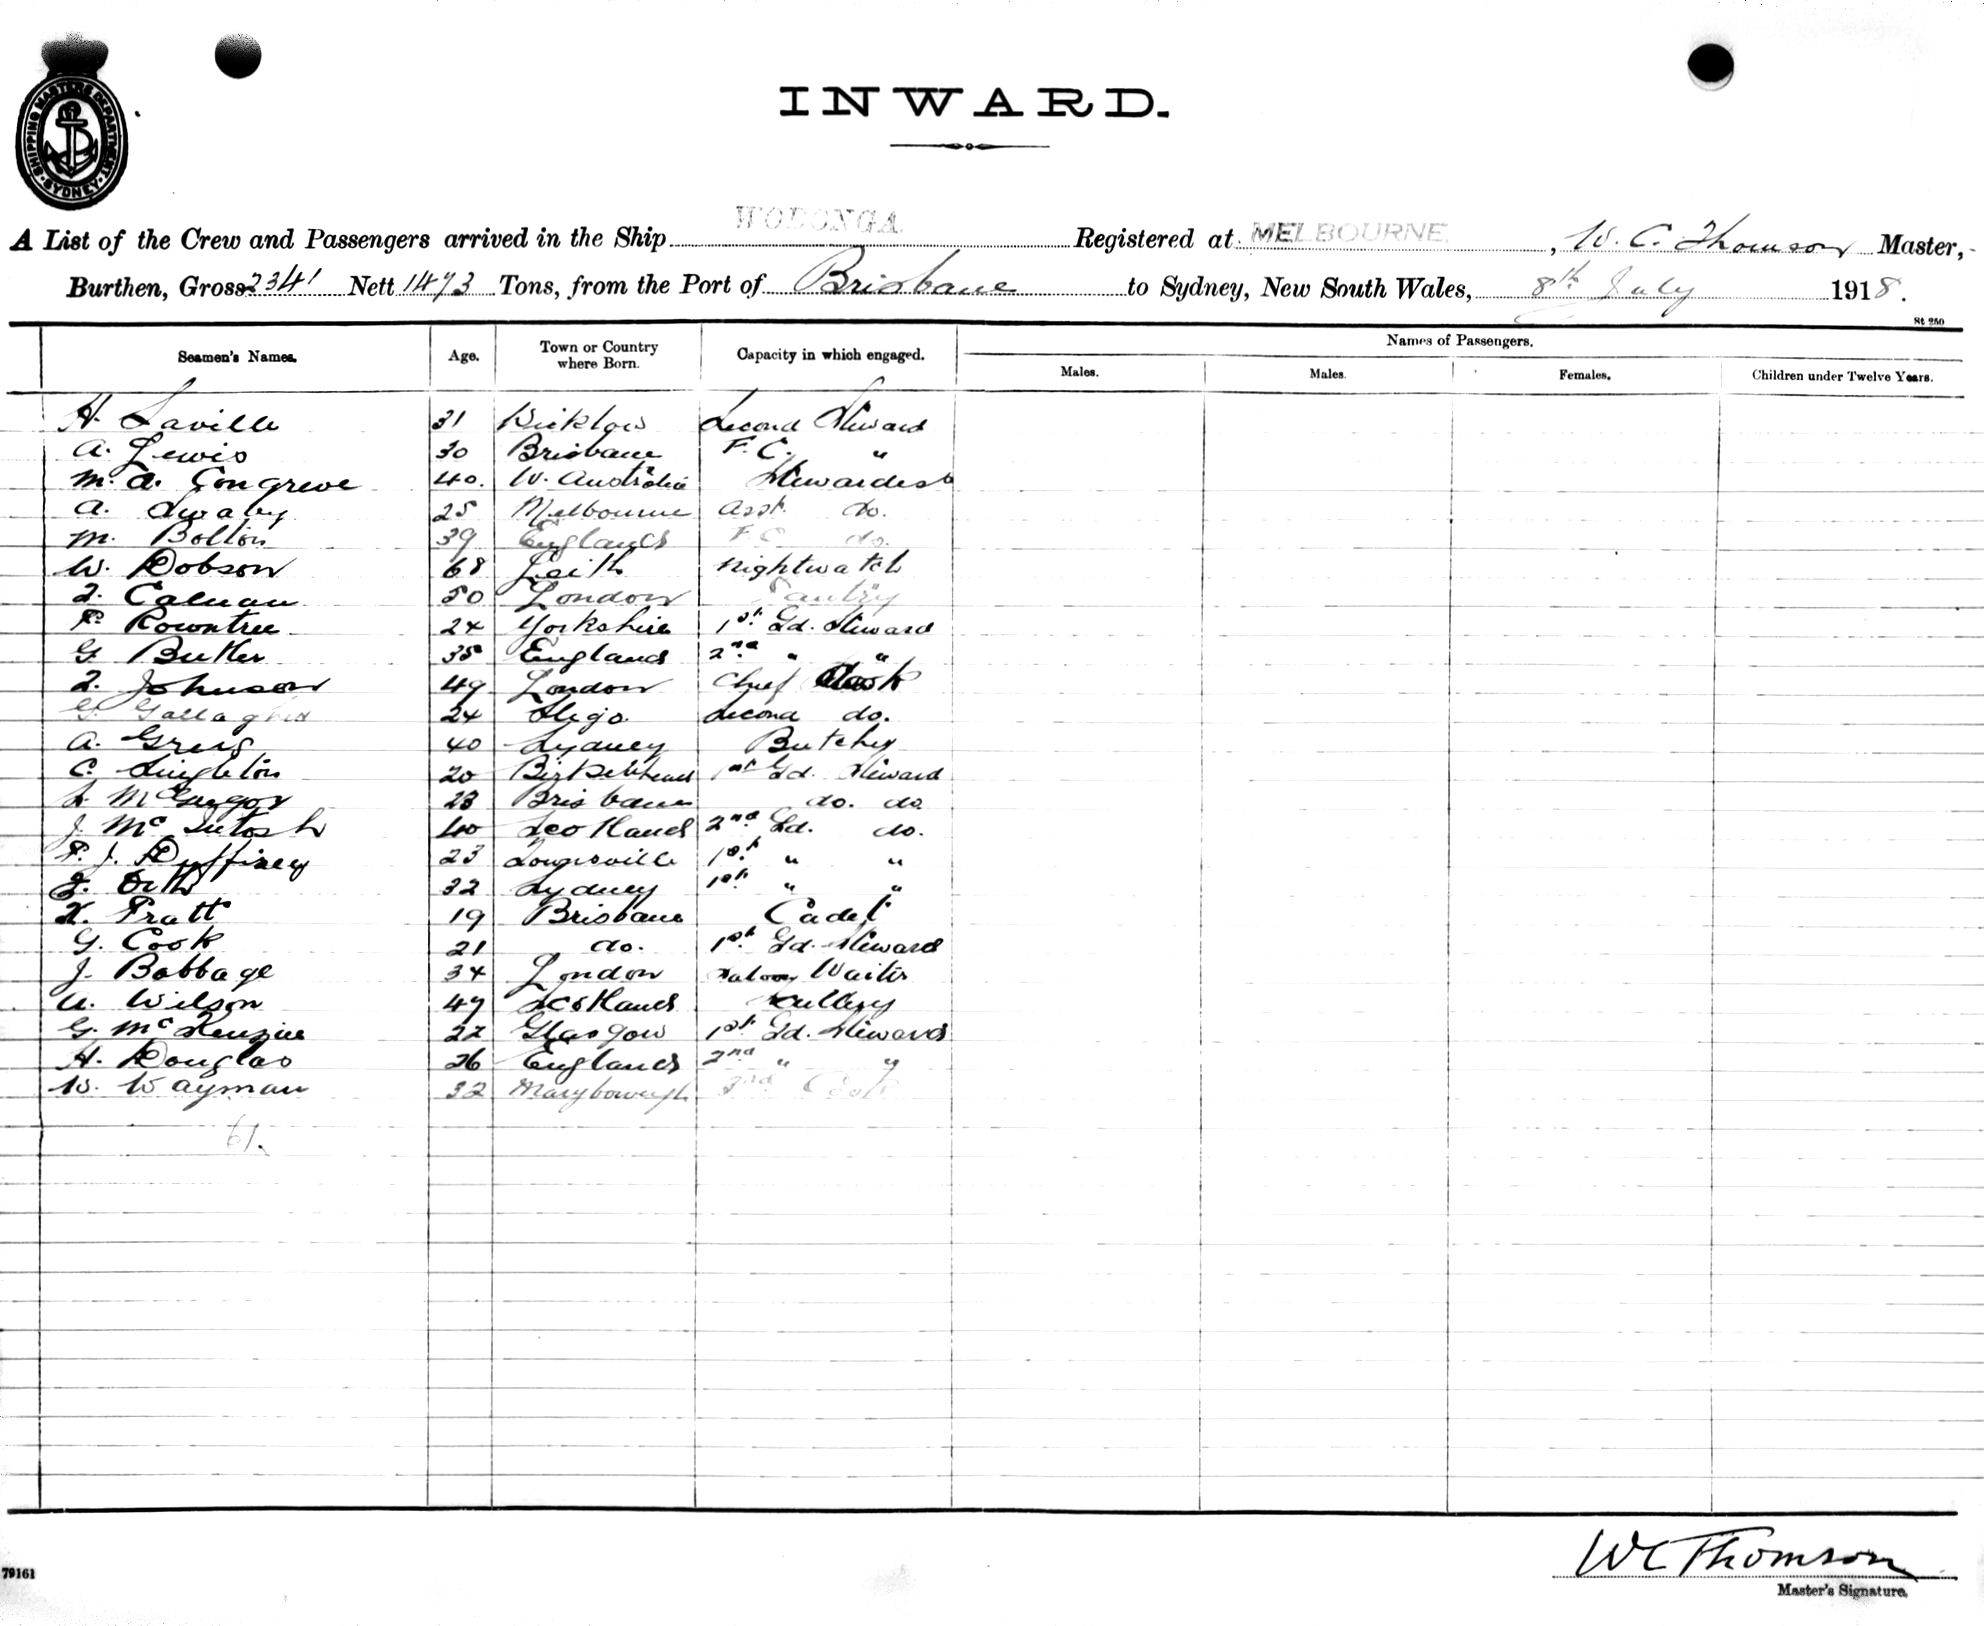 SHIPPING MASTERS DEPARTMENT SYDNEY
INWARD.
A List of the Crew and Passengers arrived in the Ship WODONGA Registered at MELBOURNE, W. C. Thomson Master,
Burthen, Gross 2341 Nett 1473 Tons, from the Port of Brisbane to Sydney, New South Wales, 8th July 1918.
St 250
Seamen's Names. Age. Town or Country where Born. Capacity in which engaged. Names of Passengers.
Males. Males. Females. Children under Twelve Years.
H. Saville 31 Second Steward
A. Lewis 30 Brisbane F. C. "
M. A. Congreve 40. W. Australia Stewardess
A. Swaby 25 Melbourne Asst. do.
M. Bolton 39 England F.C. do.
W. Dobson 68 Leith Nightwatch
50 London Pantry
Rowntree 24 Yorkshire 1st Gd. Steward
G. Butler 35 England 2nd " "
Johnson 49 London Chief Cook
G. Gallagher 24 Sligo Second do.
A. Greig 40 Sydney Butcher
C. Singleton 20 Birkenhead 1st Gd. Steward
McGregor 23 Brisbane do. do
J. McIntosh 40 Scotland 2nd Gd. do.
P. J. Duffisey 23 Townsville 1st " "
32 Sydney 1st " "
Pratt 19 Brisbane Cadet
G. Cook 21 do. 1st Gd. Steward
J. Babbage 34 London Saloon Waiter
A. Wilson 49 Scotland Scullery
G. McKenzie 22 Glasgow 1st Gd. Steward
H. Douglas 26 England 2nd " "
W. Wayman 32 Maryborough 3rd Cook
61.
WC Thomson
79161
Master's Signature.